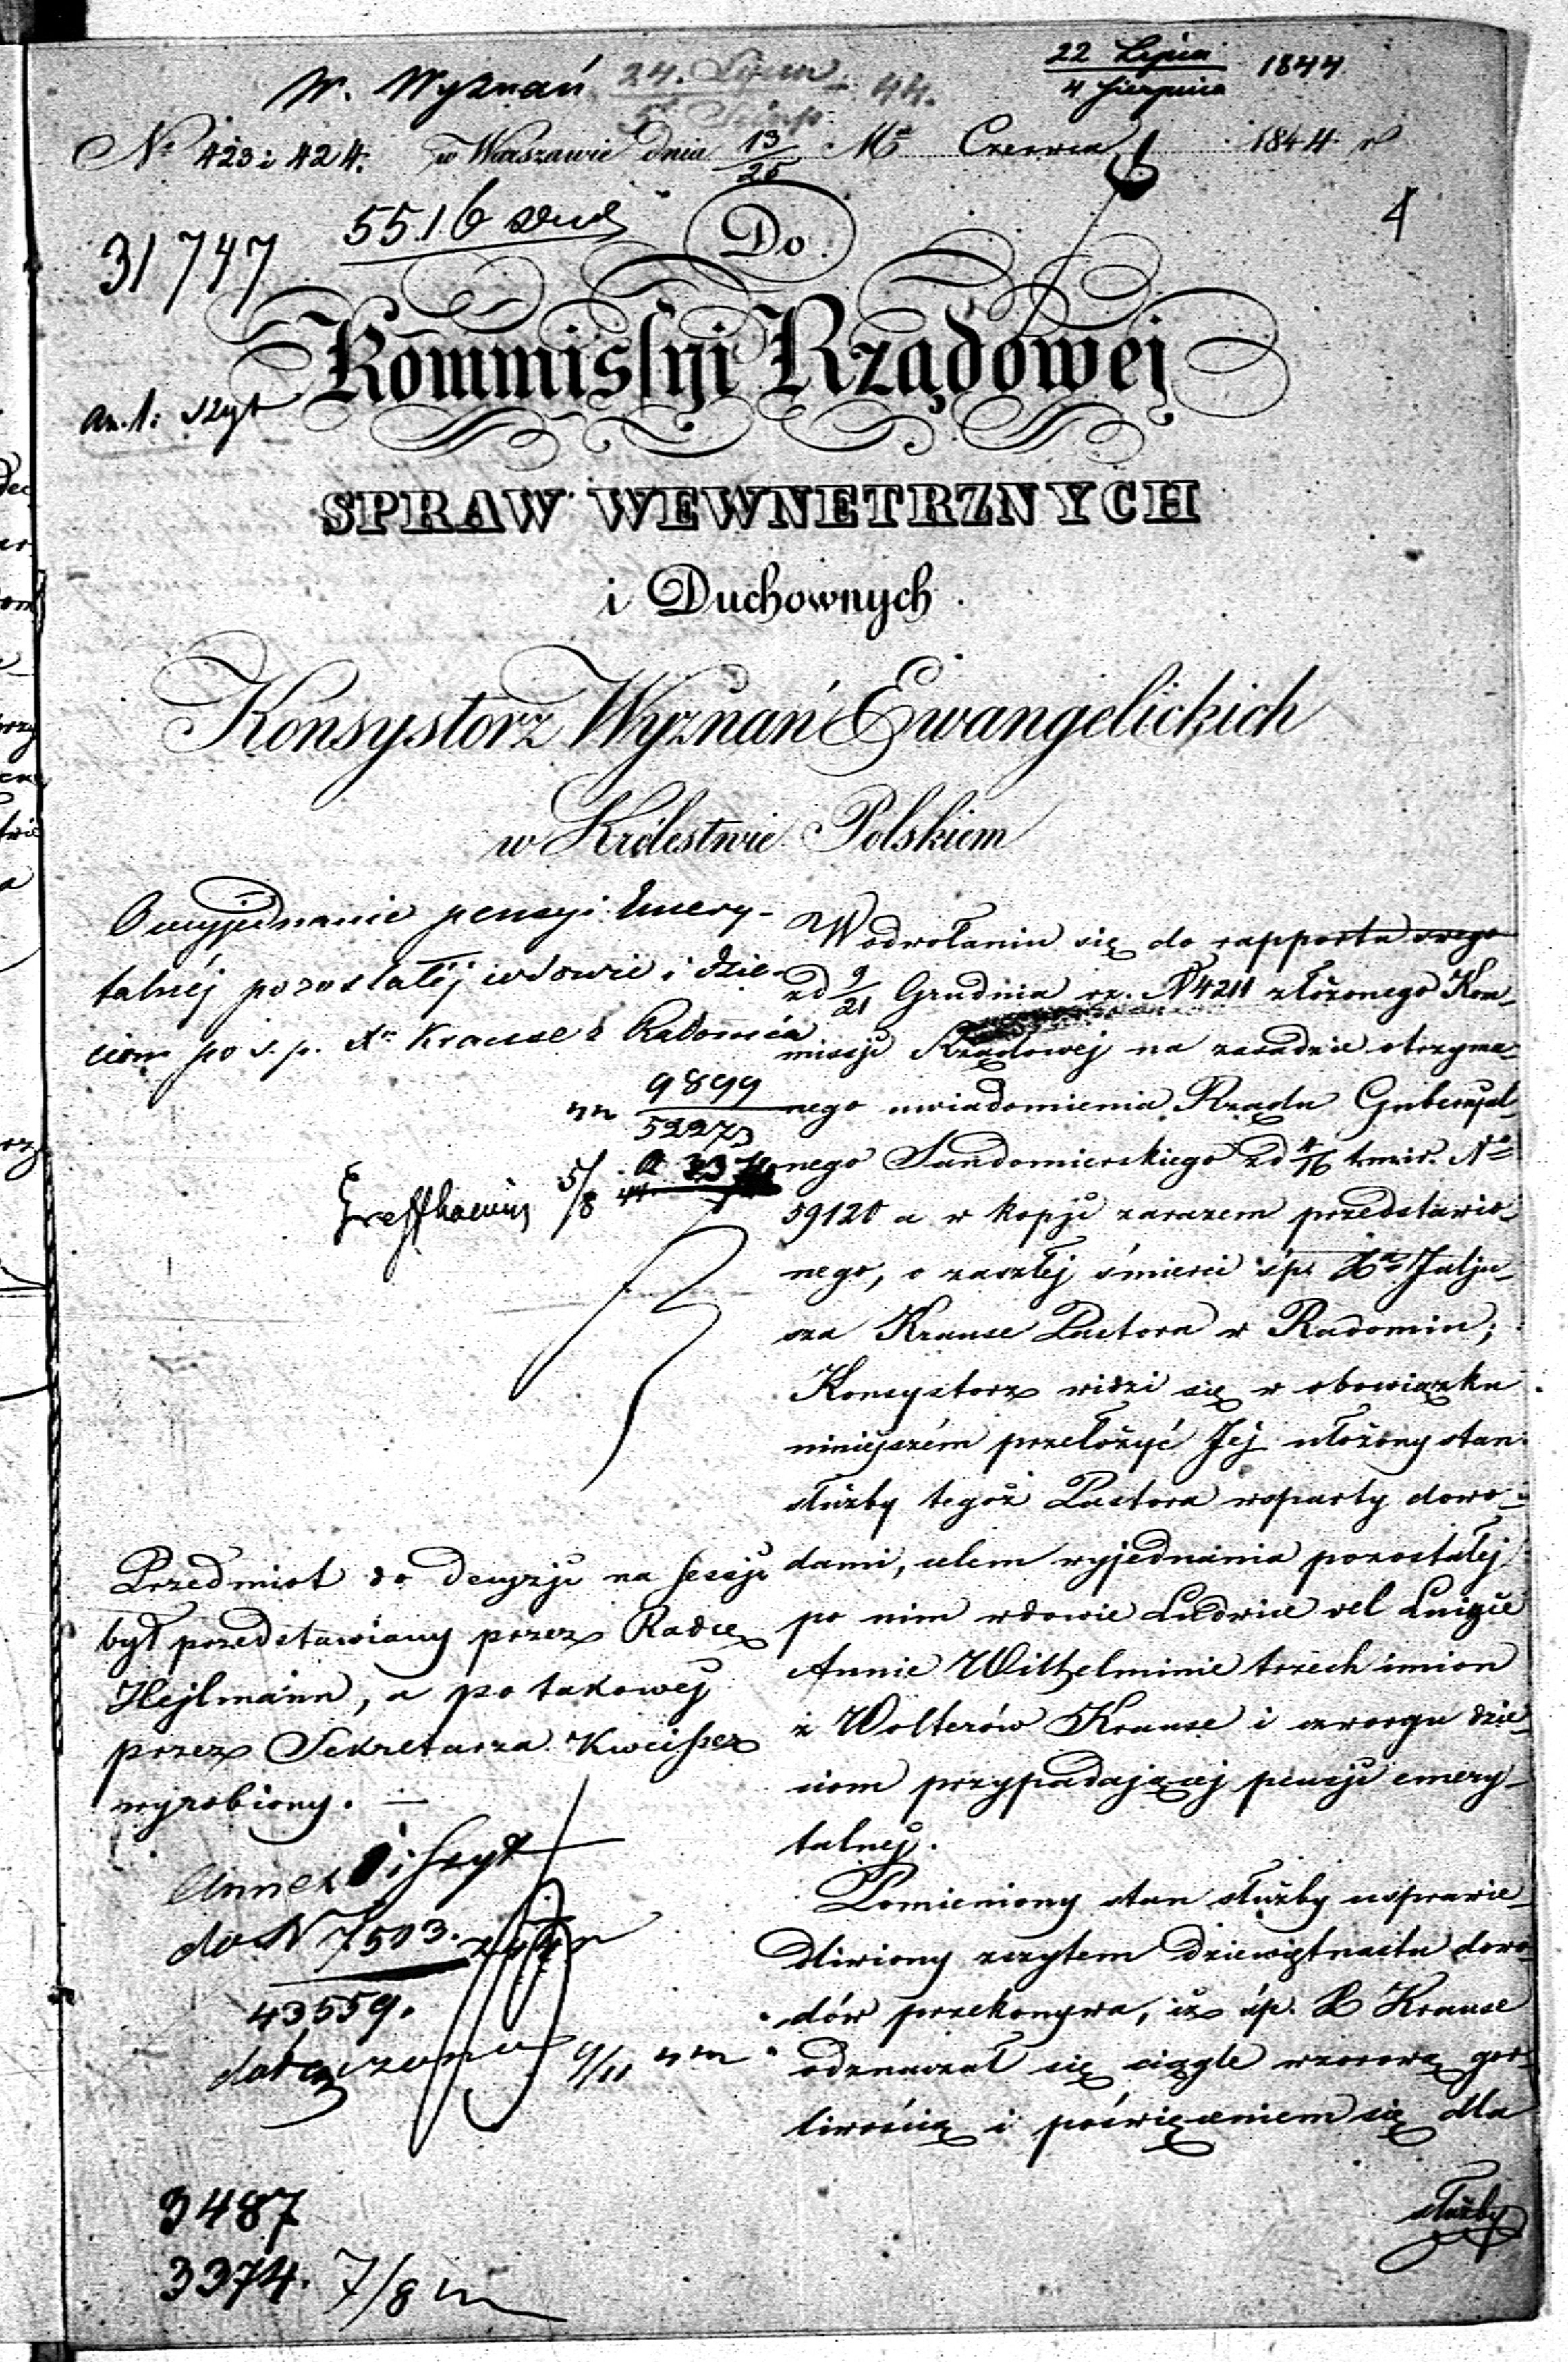 W. Wyznań
24. Lipca 44.
22 Lipca 1844
4 Sierpnia
No 423 i 424. w Warszawie dnia 13/25 Ms Czerwca 1844 r
4
31747
5516
Do
Kommissyi Rządowej
an. 1: szyt
SPRAW WEWNETRZNYCH
i Duchownych.
Konsystorz Wyznań Ewangelickich
w Królestwie Polskiem
O wyjednanie pensyi Emery-
talnéj pozostałéj wdowie i dzie-
ciom po ś. p. Xu Krause z Radomia
9899
52273
5/8
W odwołaniu się do rapportu swego
zd 9/21 Grudnia rz. N 4211 złożonego Kom-
missji Rządowej na zasadzie otrzyma-
nego uwiadomienia Rządu Gubernjal-
nego Sandomierskiego zd 4/16 tmir. No
59120 a w kopji zarazem przedstawio-
nego, o zaszłej śmierci śp. Xa Julju-
sza Krause Pastora w Radomiu;
Konsystorz widzi się w obowiązku
niniejszém przełożyć Jej ułożony stan
służby tegoż Pastora wsparty dowo-
dami, celem wyjednania pozostałej
po nim wdowie Ludwice vel Luizie
Annie Wilhelminie trzech imion
z Wolterów Krause i czworgu dzie-
ciom przypadającej pensji emery-
talnej.
Pomieniony stan służby usprawie-
dliwiony szytem dziewiętnastu dowo-
dów przekonywa, iż śp. X Krause
odznaczał się ciągle wzorową gor-
liwością i poświęceniem się dla
służby
Przedmiot do decyzji na sessji
był przedstawiany przez Radcę
Hejlmann, a po takowej
przez Sekretarza Kweisser
wyrobiony.
Annex 1 i szyt
do N 7513.
43,559.
dołączono 9/11
3487
3374. 7/8